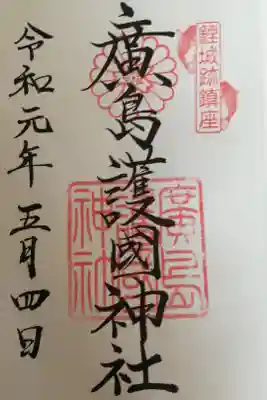 鯉城跡鎮座
廣島護國神社
令和元年五月四日
廣島
護國
神社